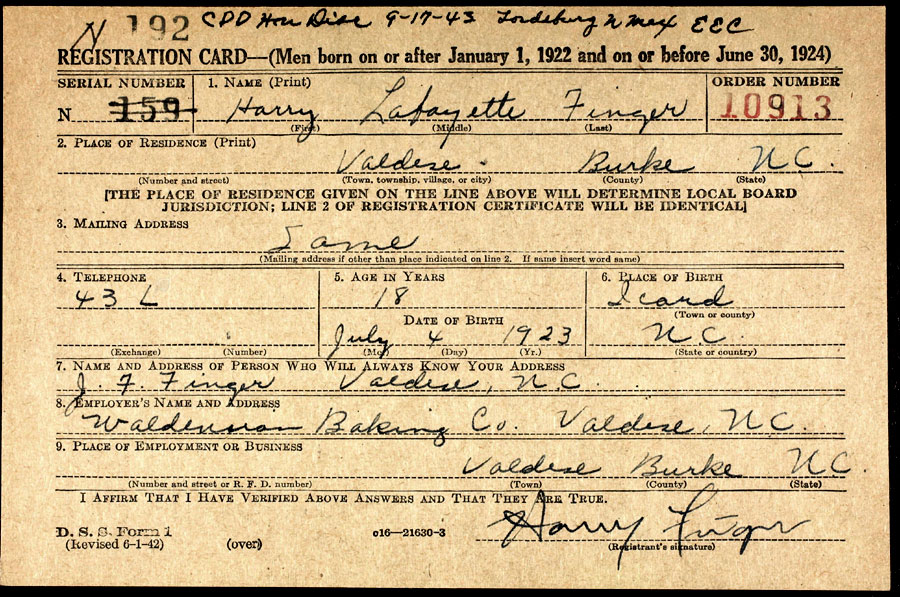 N 192 CDD Hon Disc 9-17-43 Lordsburg N Mex EEC
REGISTRATION CARD—(Men born on or after January 1, 1922 and on or before June 30, 1924)
SERIAL NUMBER 1. NAME (Print) ORDER NUMBER
N 159 Harry Lafayette Finger 10913
(First) (Middle) (Last)
2. PLACE OF RESIDENCE (Print)
Valdese Burke N.C.
(Number and street) (Town, township, village, or city) (County) (State)
[THE PLACE OF RESIDENCE GIVEN ON THE LINE ABOVE WILL DETERMINE LOCAL BOARD
JURISDICTION; LINE 2 OF REGISTRATION CERTIFICATE WILL BE IDENTICAL]
3. MAILING ADDRESS
Same
(Mailing address if other than place indicated on line 2. If same insert word same)
4. TELEPHONE 5. AGE IN YEARS 6. PLACE OF BIRTH
43 L 18 Icard
(Town or county)
DATE OF BIRTH
July 4 1923 N.C.
(Exchange) (Number) (Mo.) (Day) (Yr.) (State or country)
7. NAME AND ADDRESS OF PERSON WHO WILL ALWAYS KNOW YOUR ADDRESS
J. F. Finger Valdese, N.C.
8. EMPLOYER'S NAME AND ADDRESS
Waldensian Baking Co. Valdese, N.C.
9. PLACE OF EMPLOYMENT OR BUSINESS
Valdese Burke N.C.
(Number and street or R. F. D. number) (Town) (County) (State)
I AFFIRM THAT I HAVE VERIFIED ABOVE ANSWERS AND THAT THEY ARE TRUE.
D. S. S. Form 1 Harry Finger
(Revised 6-1-42) (over) c16—21630-3 (Registrant's signature)